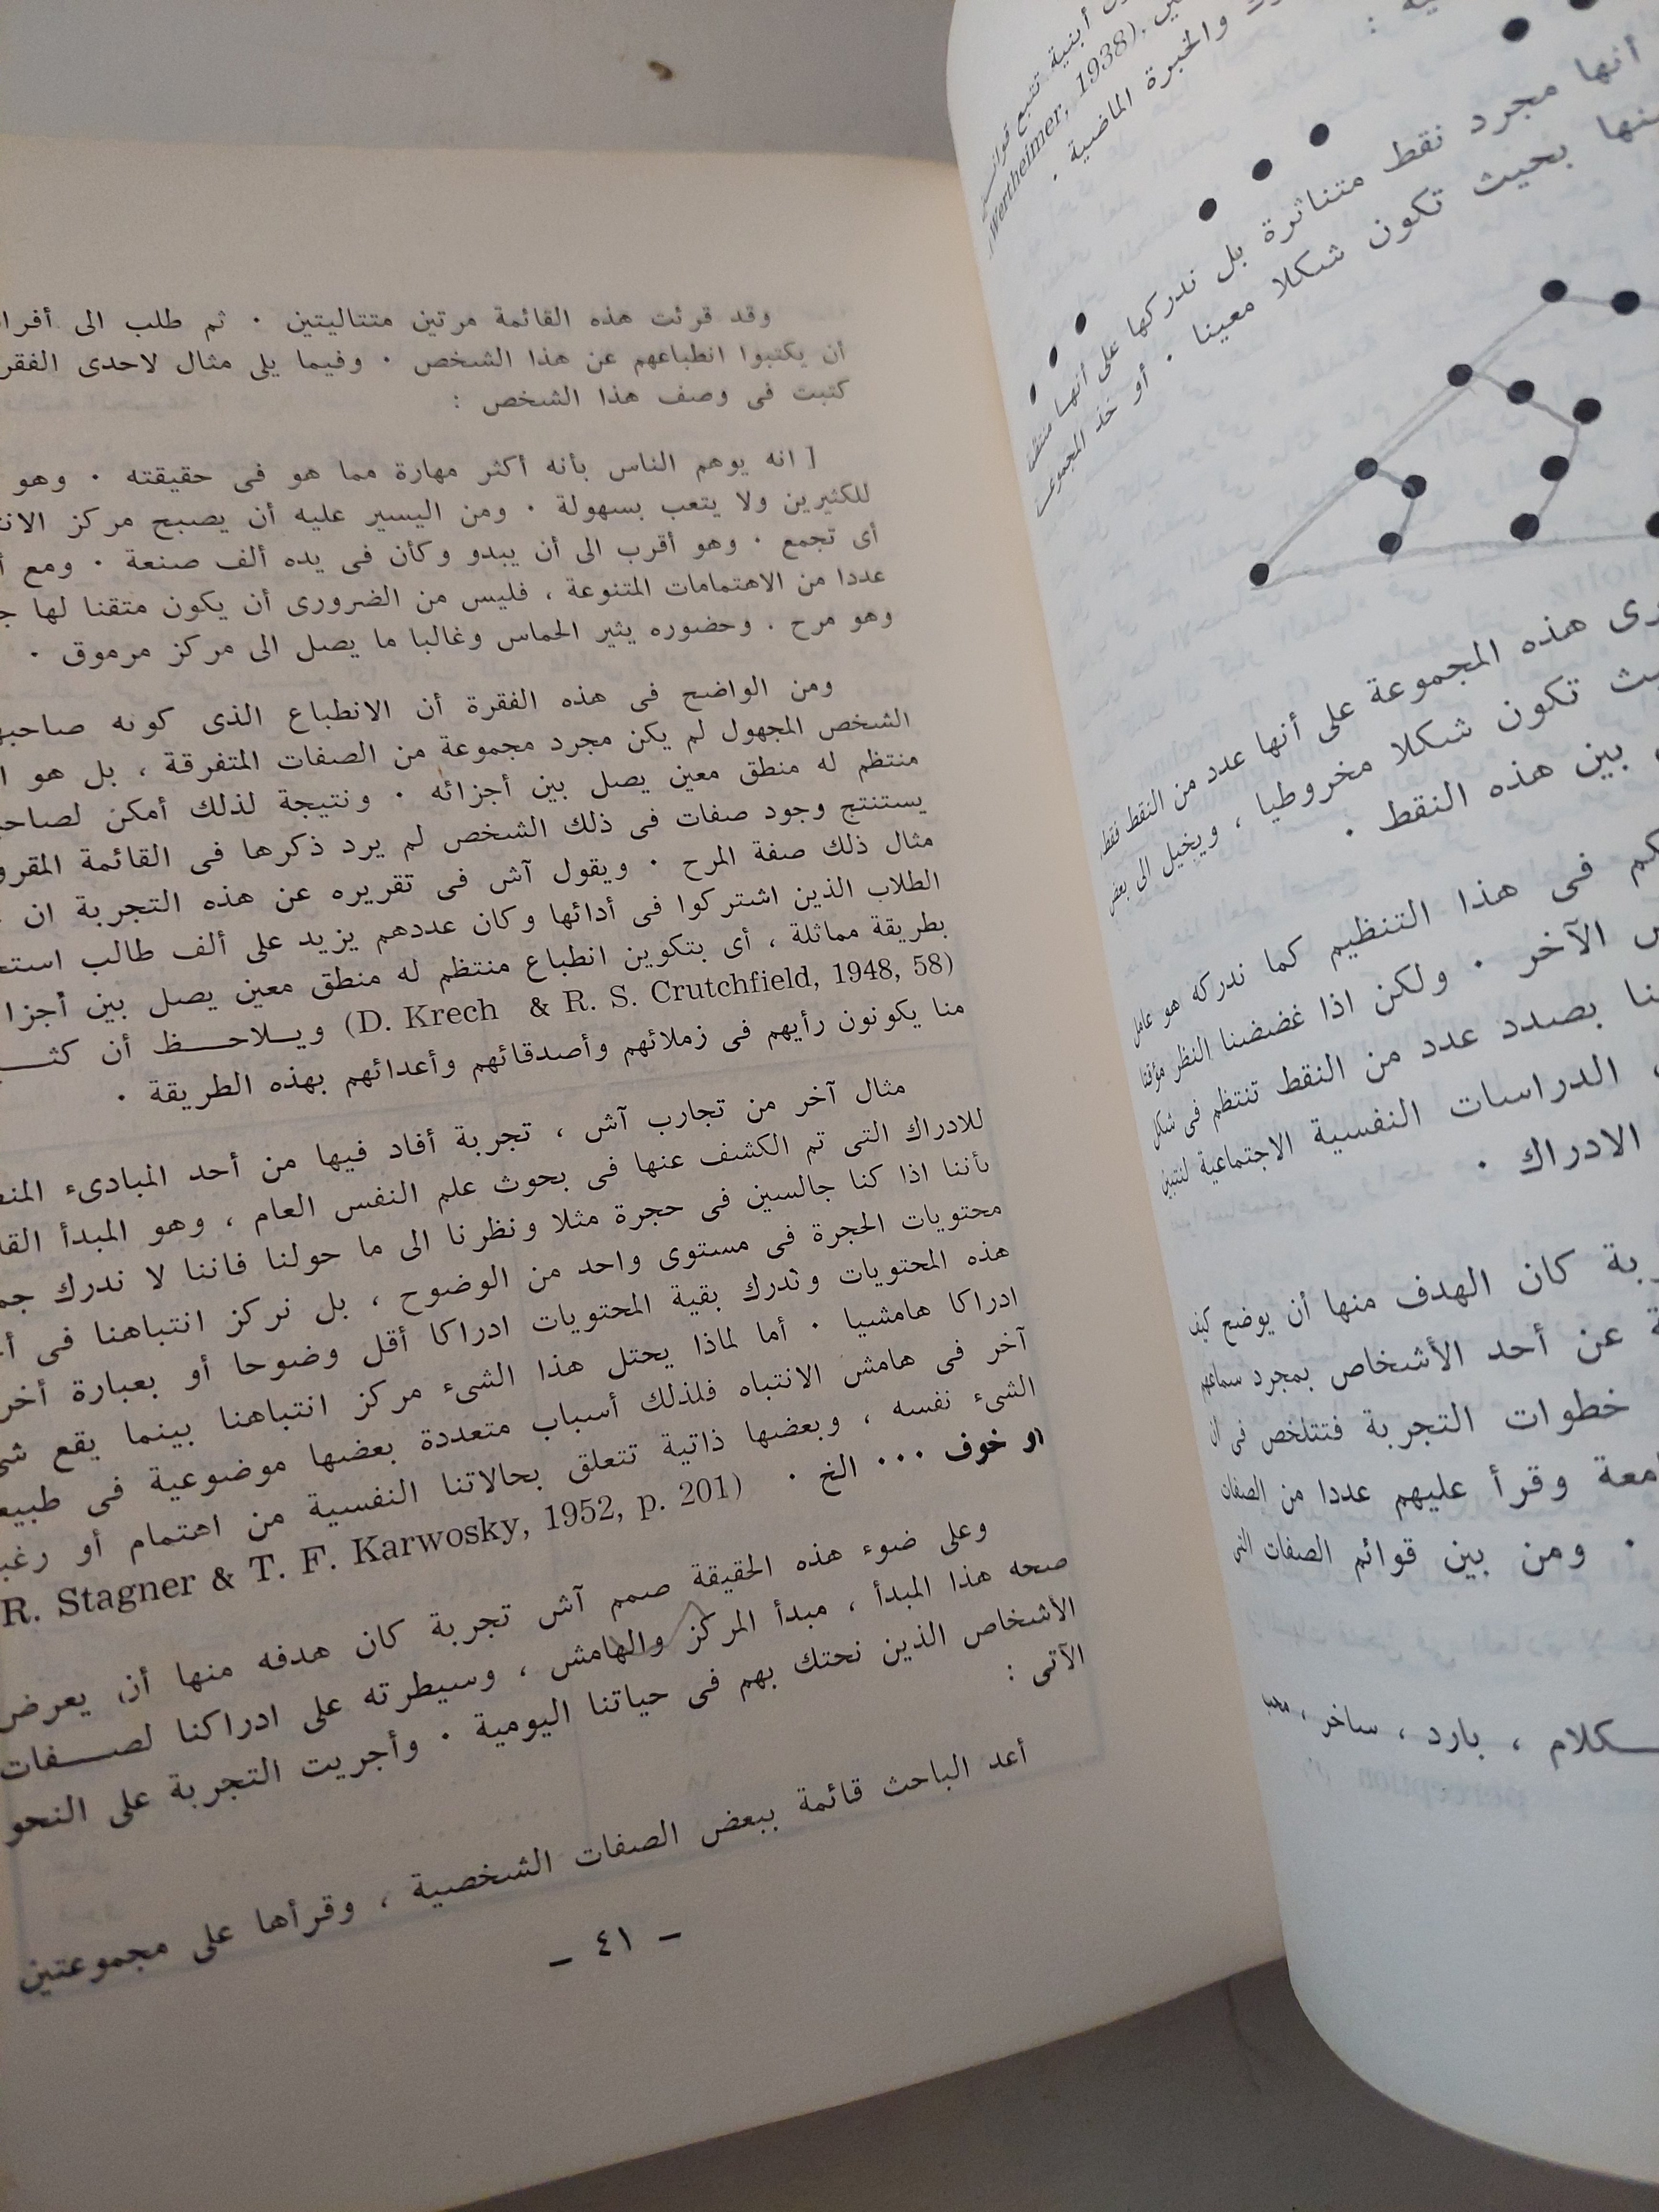 أبنية تتبع
(Wertheimer, 1938).
والخبرة الماضية .
أنها مجرد نقط متناثرة بل ندركها على أنها
بحيث تكون شكلا معينا . أو خذ
هذه المجموعة على أنها عدد من النقط فقط
تكون شكلا مخروطيا ، ويخيل الى بعض
بين هذه النقط .
فى هذا التنظيم كما ندركه هو عامل
الآخر . ولكن اذا غضضنا النظر مؤقتا
بصدد عدد من النقط تنتظم فى شكل
الدراسات النفسية الاجتماعية لنتبين
الادراك .
كان الهدف منها أن يوضح كيف
عن أحد الأشخاص بمجرد سماعهم
خطوات التجربة فتتلخص فى ان
وقرأ عليهم عددا من الصفات
. ومن بين قوائم الصفات التى
، بارد ، ساخر ، محب
وقد قرئت هذه القائمة مرتين متتاليتين . ثم طلب الى
أن يكتبوا انطباعهم عن هذا الشخص . وفيما يلى مثال لاحدى
كتبت فى وصف هذا الشخص :
[ انه يوهم الناس بأنه أكثر مهارة مما هو فى حقيقته . وهو
للكثيرين ولا يتعب بسهولة . ومن اليسير عليه أن يصبح مركز
أى تجمع . وهو أقرب الى أن يبدو وكأن فى يده ألف صنعة . ومع
عددا من الاهتمامات المتنوعة ، فليس من الضرورى أن يكون متقنا لها
وهو مرح . وحضوره يثير الحماس وغالبا ما يصل الى مركز مرموق .
ومن الواضح فى هذه الفقرة أن الانطباع الذى كونه
الشخص المجهول لم يكن مجرد مجموعة من الصفات المتفرقة ، بل هو
منتظم له منطق معين يصل بين أجزائه . ونتيجة لذلك أمكن
يستنتج وجود صفات فى ذلك الشخص لم يرد ذكرها فى القائمة
مثال ذلك صفة المرح . ويقول آش فى تقريره عن هذه التجربة ان
الطلاب الذين اشتركوا فى أدائها وكان عددهم يزيد على ألف طالب
بطريقة مماثلة ، أى بتكوين انطباع منتظم له منطق معين يصل بين
(D. Krech & R. S. Crutchfield, 1948, 58) ويـلاحـــظ أن
منا يكونون رأيهم فى زملائهم وأصدقائهم وأعدائهم بهذه الطريقة .
مثال آخر من تجارب آش ، تجربة أفاد فيها من أحد المبادىء
للادراك التى تم الكشف عنها فى بحوث علم النفس العام ، وهو المبدأ
بأننا اذا كنا جالسين فى حجرة مثلا ونظرنا الى ما حولنا فاننا لا ندرك
محتويات الحجرة فى مستوى واحد من الوضوح ، بل نركز انتباهنا فى
هذه المحتويات وندرك بقية المحتويات ادراكا أقل وضوحا أو بعبارة
ادراكا هامشيا . أما لماذا يحتل هذا الشىء مركز انتباهنا بينما يقع
آخر فى هامش الانتباه فلذلك أسباب متعددة بعضها موضوعية فى
الشىء نفسه ، وبعضها ذاتية تتعلق بحالاتنا النفسية من اهتمام أو
او خوف ... الخ . R. Stagner & T. F. Karwosky, 1952, p. 201)
وعلى ضوء هذه الحقيقة صمم آش تجربة كان هدفه منها أن يعرض
صحه هذا المبدأ ، مبدأ المركز والهامش ، وسيطرته على ادراكنا لصـــفات
الأشخاص الذين نحتك بهم فى حياتنا اليومية . وأجريت التجربة على النحو
الآتى :
أعد الباحث قائمة ببعض الصفات الشخصية ، وقرأها على مجموعتين
– ٤١ –